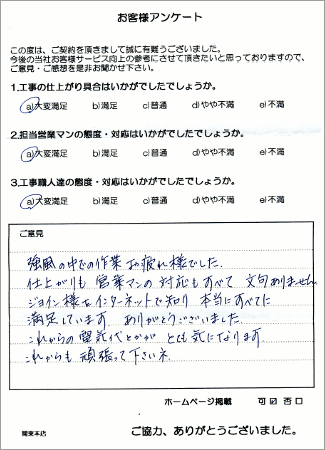 お客様アンケート
この度は、ご契約を頂きまして誠に有難うございました。
今後の当社お客様サービス向上の参考にさせて頂きたいと思っておりますので、
ご意見・ご感想を是非お聞かせ下さい。
1.工事の仕上がり具合はいかがでしたでしょうか。
a)大変満足 b)満足 c)普通 d)やや不満 e)不満
2.担当営業マンの態度・対応はいかがでしたでしょうか。
a)大変満足 b)満足 c)普通 d)やや不満 e)不満
3.工事職人達の態度・対応はいかがでしたでしょうか。
a)大変満足 b)満足 c)普通 d)やや不満 e)不満
ご意見
強風の中での作業 お疲れ様でした。
仕上がりも 営業マンの対応もすべて 文句ありません。
ジョイン様をインターネットで知り 本当にすべてに
満足しています。ありがとうございました。
これからの電気代とかが とても気になります。
これからも 頑張って下さいネ
ホームページ掲載 可 ☑ 否 口
関東本店
ご協力、ありがとうございました。